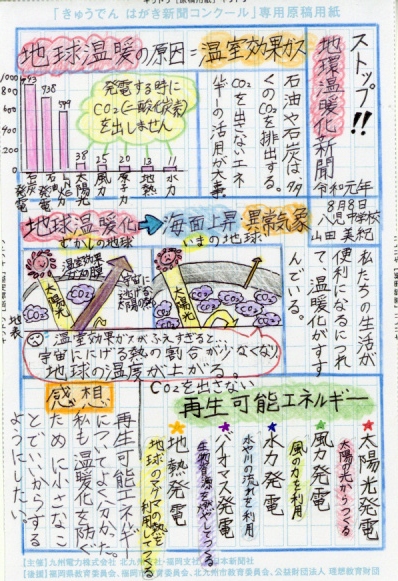 「きゅうでん はがき新聞コンクール」専用原稿用紙
ストップ!!
地球温暖化新聞
令和元年
8月8日
山田美紀
地球温暖の原因=温室効果ガス
石油や石炭は、多
くのCO₂を排出する。
CO₂を出さないエネ
ルギーの活用が大事
発電する時に
CO₂(二酸化炭素)
を出しません
1000
800
600
400
200
0
943
738
599
38
25
20
13
11
石炭発電
石油
LNG火力
太陽光
風力
原子力
地熱
水力
私たちの生活が
便利になるにつれ
て、温暖化がすす
んでいる。
地球温暖化→海面上昇 異常気象
むかしの地球
いまの地球
太陽光
温室効果
ガスの膜
宇宙に
逃げる
太陽の熱
太陽光
CO₂
CO₂
CO₂
CO₂
地表
温室効果ガスがふえすぎると…
宇宙ににげる熱の割合が少なくなり、
地球の温度が上がる。
CO₂を出さない
再生可能エネルギー
★太陽光発電
太陽の光からつくる
★風力発電
風の力を利用
★水力発電
水や川の流れを利用
★バイオマス発電
生物資源を燃やしてつくる
★地熱発電
地球のマグマの熱を
利用してつくる
感想
再生可能エネルギー
についてよく分かった。
私も温暖化を防ぐ
ために小さなこ
とでいいからする
ようにしたい。
【主催】九州電力株式会社 北九州支社・福岡支社 日本新聞社
【後援】福岡県教育委員会、福岡市教育委員会、北九州市教育委員会、公益財団法人 理想教育財団